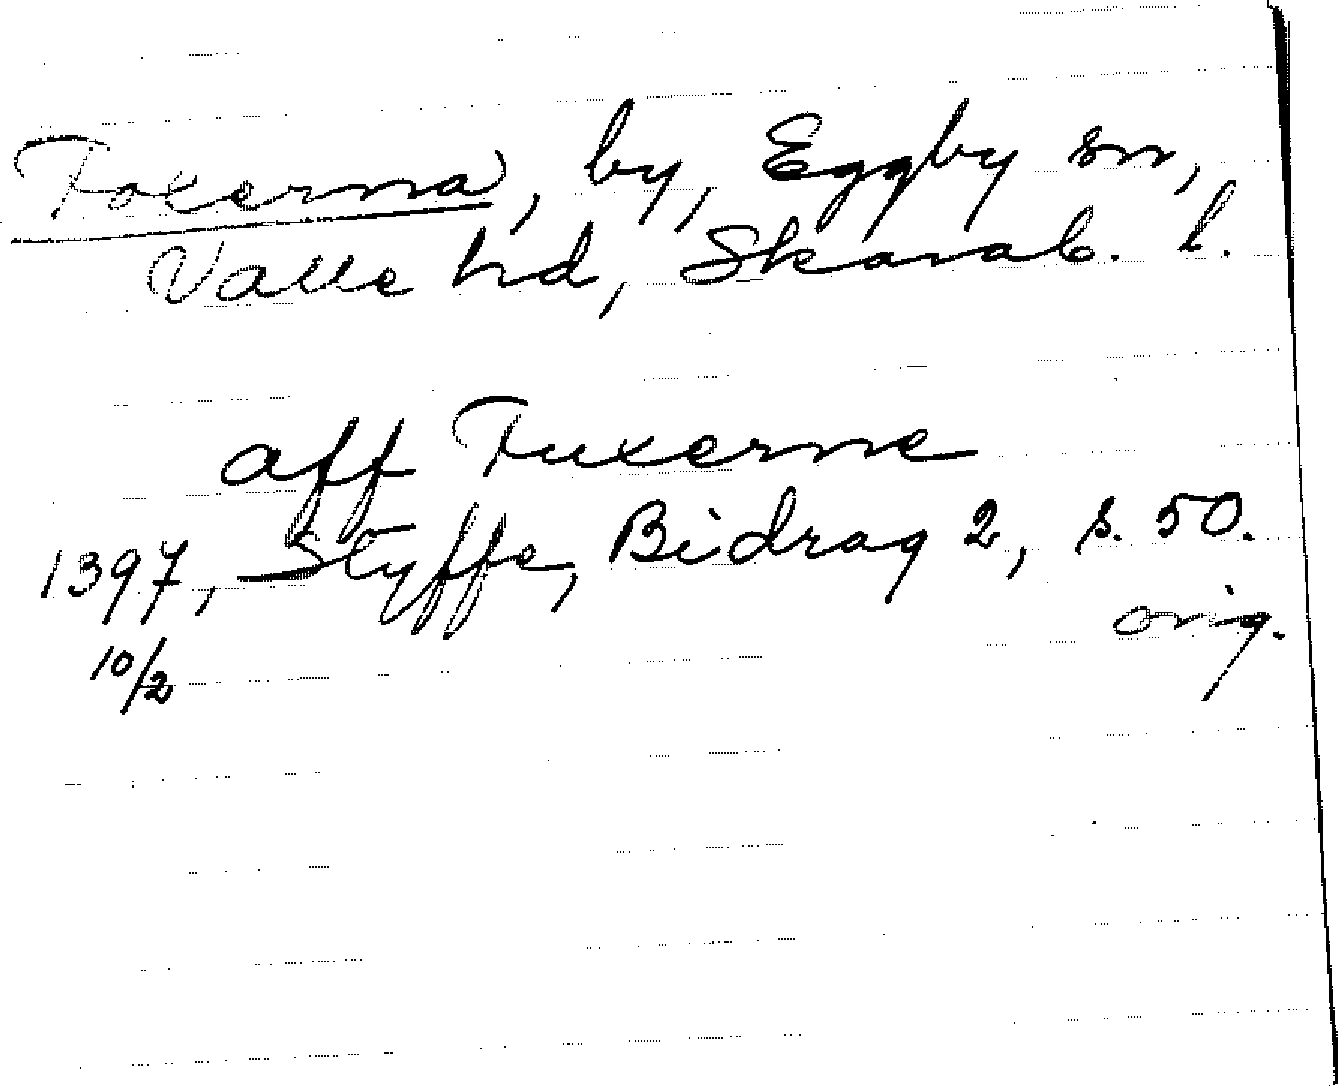 Toxerna, by, Eggby sn,
Valle hd, Skarab. l.
aff Tuxerne
1397, Styffe, Bidrag 2, s. 50.
10/2 orig.